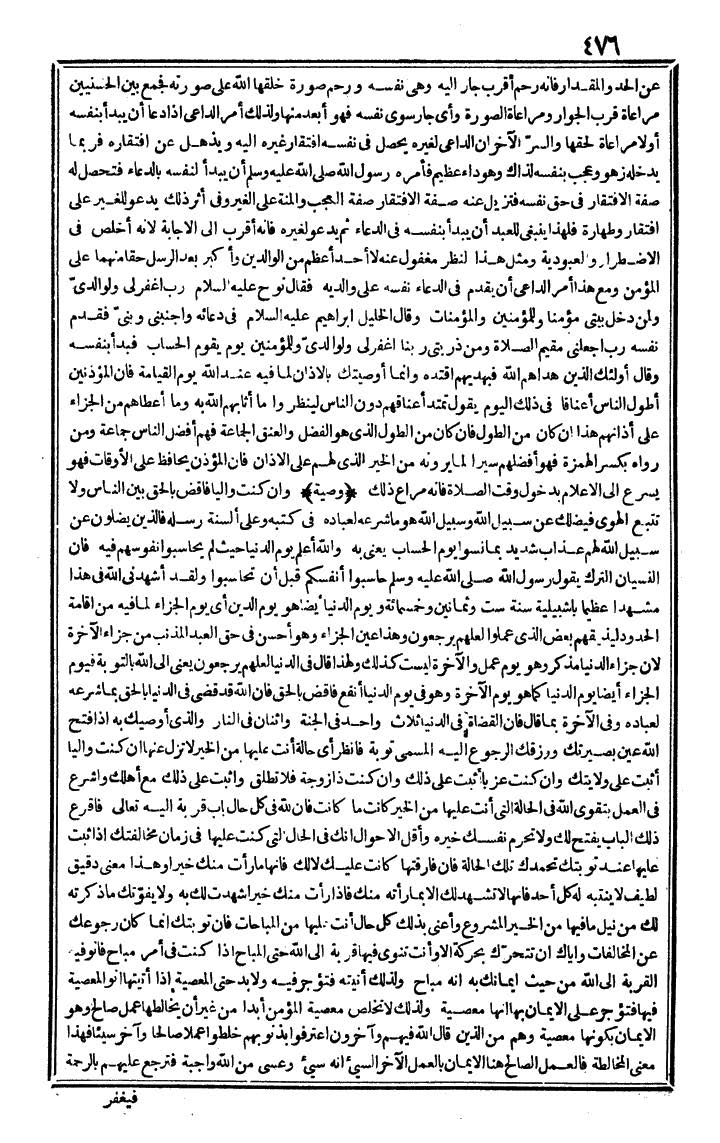 ٤٧٦
عن الحد والمقدار فانه رحم أقرب جار اليه وهى نفسه ورحم صورة خلقها الله على صورته فجمع بين الحسنيين
مراعاة قرب الجوار ومراعاة الصورة وأى جار سوى نفسه فهو أبعد منها ولذلك أمر الداعى اذا دعا أن يبدأ بنفسه
أولا مراعاة لحقها والسرّ الآخر ان الداعى لغيره يحصل فى نفسه افتقار غيره اليه ويذهل عن افتقاره فربما
يدخله زهو وعجب بنفسه لذاك وهو داء عظيم فأمره رسول الله صلى الله عليه وسلم أن يبدأ لنفسه بالدعاء فتحصل له
صفة الافتقار فى حق نفسه فتزيل عنه صفة الافتقار صفة العجب والمنة على الغير وفى أثر ذلك يدعو للغير على
افتقار وطهارة فلهذا ينبغى للعبد أن يبدأ بنفسه فى الدعاء ثم يدعو لغيره فانه أقرب الى الاجابة لانه أخلص فى
الاضطرار والعبودية ومثل هذا لنظر مغفول عنه لا أحد أعظم من الوالدين وأكبر بعد الرسل حقا منهما على
المؤمن ومع هذا أمر الداعى أن يقدم فى الدعاء نفسه على والديه فقال نوح عليه السلام رب اغفر لى ولوالدىّ
ولمن دخل بيتى مؤمنا وللمؤمنين والمؤمنات وقال الخليل ابراهيم عليه السلام فى دعائه واجنبنى وبنىّ فقدم
نفسه رب اجعلنى مقيم الصلاة ومن ذريتى ربنا اغفر لى ولوالدىّ وللمؤمنين يوم يقوم الحساب فبدأ بنفسه
وقال أولئك الذين هداهم الله فبهديهم اقتده وانما أوصيتك بالاذان لما فيه عند الله يوم القيامة فان المؤذنين
أطول الناس أعناقا فى ذلك اليوم يقول تمتد أعناقهم دون الناس لينظروا ما أثابهم الله به وما أعطاهم من الجزاء
على أذانهم هذا ان كان من الطول فان كان من الطول الذى هو الفضل والعنق الجماعة فهم أفضل الناس جماعة ومن
رواه بكسر الهمزة فهو أفضلهم سيرا لما يرونه من الخير الذى لهم على الاذان فان المؤذن يحافظ على الأوقات فهو
يسرع الى الاعلام بدخول وقت الصلاة فانه مراع ذلك ﴿وصية﴾ وان كنت واليا فاقض بالحق بين الناس ولا
تتبع الهوى فيضلك عن سبيل الله وسبيل الله هو ما شرعه لعباده فى كتبه وعلى ألسنة رسله فالذين يضلون عن
سبيل الله لهم عذاب شديد بما نسوا يوم الحساب يعنى به والله أعلم يوم الدنيا حيث لم يحاسبوا نفوسهم فيه فان
النسيان الترك يقول رسول الله صلى الله عليه وسلم حاسبوا أنفسكم قبل أن تحاسبوا ولقد أشهدنى الله فى هذا
مشهدا عظيما باشبيلية سنة ست وثمانين وخمسمائة ويوم الدنيا أيضا هو يوم الدين أى يوم الجزاء لما فيه من اقامة
الحدود ليذيقهم بعض الذى عملوا لعلهم يرجعون وهذا عين الجزاء وهو أحسن فى حق العبد المذنب من جزاء الآخرة
لان جزاء الدنيا مذكر وهو يوم عمل والآخرة ليست كذلك ولهذا قال فى الدنيا لعلهم يرجعون يعنى الى الله بالتوبة فيوم
الجزاء أيضا يوم الدنيا كما هو يوم الآخرة وهو فى يوم الدنيا أنفع فاقض بالحق فان الله قد قضى فى الدنيا بالحق بما شرعه
لعباده وفى الآخرة بما قال فان القضاة فى الدنيا ثلاث واحد فى الجنة واثنان فى النار والذى أوصيك به اذا فتح
الله عين بصيرتك ورزقك الرجوع اليه المسمى توبة فانظر أى حالة أنت عليها من الخير لا تزل عنها ان كنت واليا
أثبت على ولايتك وان كنت عزبا أثبت على ذلك وان كنت ذا زوجة فلا تطلق واثبت على ذلك مع أهلك واشرع
فى العمل بتقوى الله فى الحالة التى أنت عليها من الخير كانت ما كانت فان لله فى كل حال باب قربة اليه تعالى فاقرع
ذلك الباب يفتح لك ولا تحرم نفسك خيره وأقل الاحوال انك فى الحال التى كنت عليها فى زمان مخالفتك اذا ثبت
عليها عند توبتك تحمدك تلك الحالة فان فارقتها كانت عليك لا لك فانها ما رأت منك خيرا وهذا معنى دقيق
لطيف لا ينتبه له كل أحد فانها لا تشهد لك الا بما رأته منك فاذا رأت منك خيرا شهدت لك به ولا يفوّتك ما ذكرته
لك من نيل ما فيها من الخير المشروع وأعنى بذلك كل حال أنت عليها من المباحات فان توبتك انما كان رجوعك
عن المخالفات واياك ان تتحرّك بحركة الا وأنت تنوى فيها قربة الى الله حتى المباح اذا كنت فى أمر مباح فانو فيه
القربة الى الله من حيث ايمانك به انه مباح ولذلك أتيته فتؤجر فيه ولا بد حتى المعصية إذا أتيتها انو المعصية
فيها فتؤجر على الايمان بها انها معصية ولذلك لا تخلص معصية المؤمن أبدا من غير أن يخالطها عمل صالح وهو
الايمان بكونها معصية وهم من الذين قال الله فيهم وآخرون اعترفوا بذنوبهم خلطوا عملا صالحا وآخر سيئا فهذا
معنى المخالطة فالعمل الصالح هنا الايمان بالعمل الآخر السيئ انه سيئ وعسى من الله واجبة فترجع عليهم بالرحمة
فيغفر